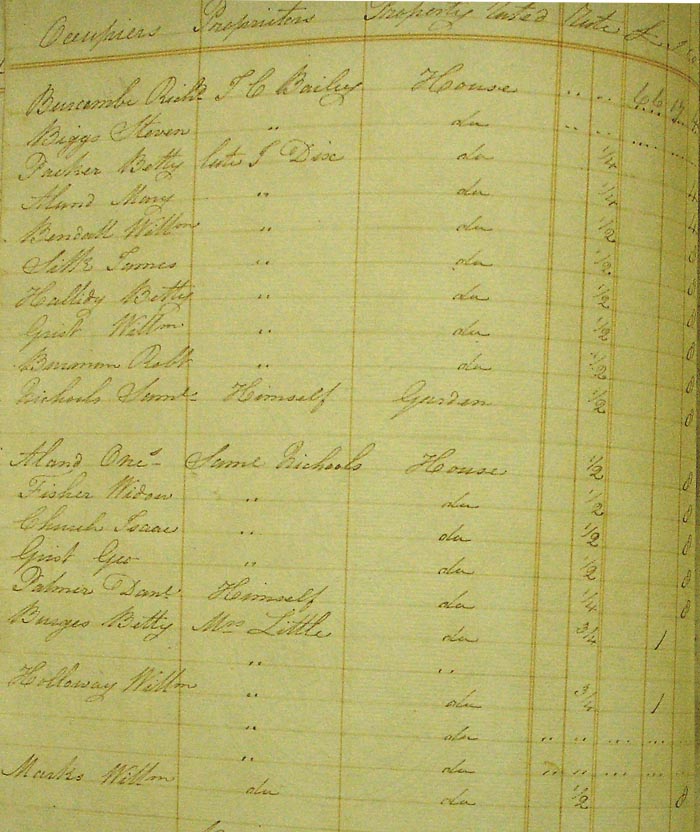 Occupiers Proprietors Property Rated Rate £
Buscombe Richd J C Bailey House " " 66 17 4
Biggs Steven " do " "
Facher Betty late J Dix do 1/4
Aland Mary " do 1/4 4
Bendall Willm " do 1/2 4
Silk James " do 1/2 8
Hallidy Betty " do 1/2 8
Grist Willm " do 1/2 8
Bowman Robt " do 1/2 8
Nichols Saml Himself Garden 1/2 8
Aland Ones Saml Nichols House 1/2 8
Fisher Widow " do 1/2 8
Church Isaac " do 1/2 8
Grist Geo " do 1/2 8
Palmer Danl Himself do 1/4
Burges Betty Mrs Little do 3/4 1
" "
Holloway Willm " do 3/4 1
" do " "
" do " "
Marks Willm do do 1/2 8